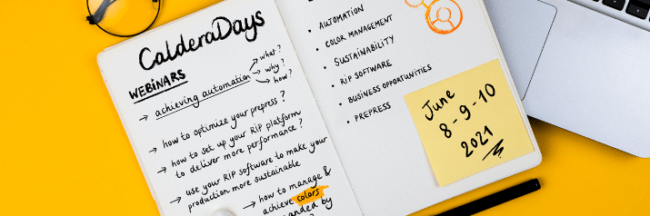 CalderaDays
WEBINARS
→ achieving automation
what?
why?
how?
→ how to optimize your prepress?
→ how to set up your RIP platform
to deliver more performance?
→ use your RIP software to make your
production more sustainable
→ how to manage &
achieve colors
by
• AUTOMATION
• COLOR MANAGEMENT
• SUSTAINABILITY
• RIP SOFTWARE
• BUSINESS OPPORTUNITIES
• PREPRESS
June
8-9-10
2021